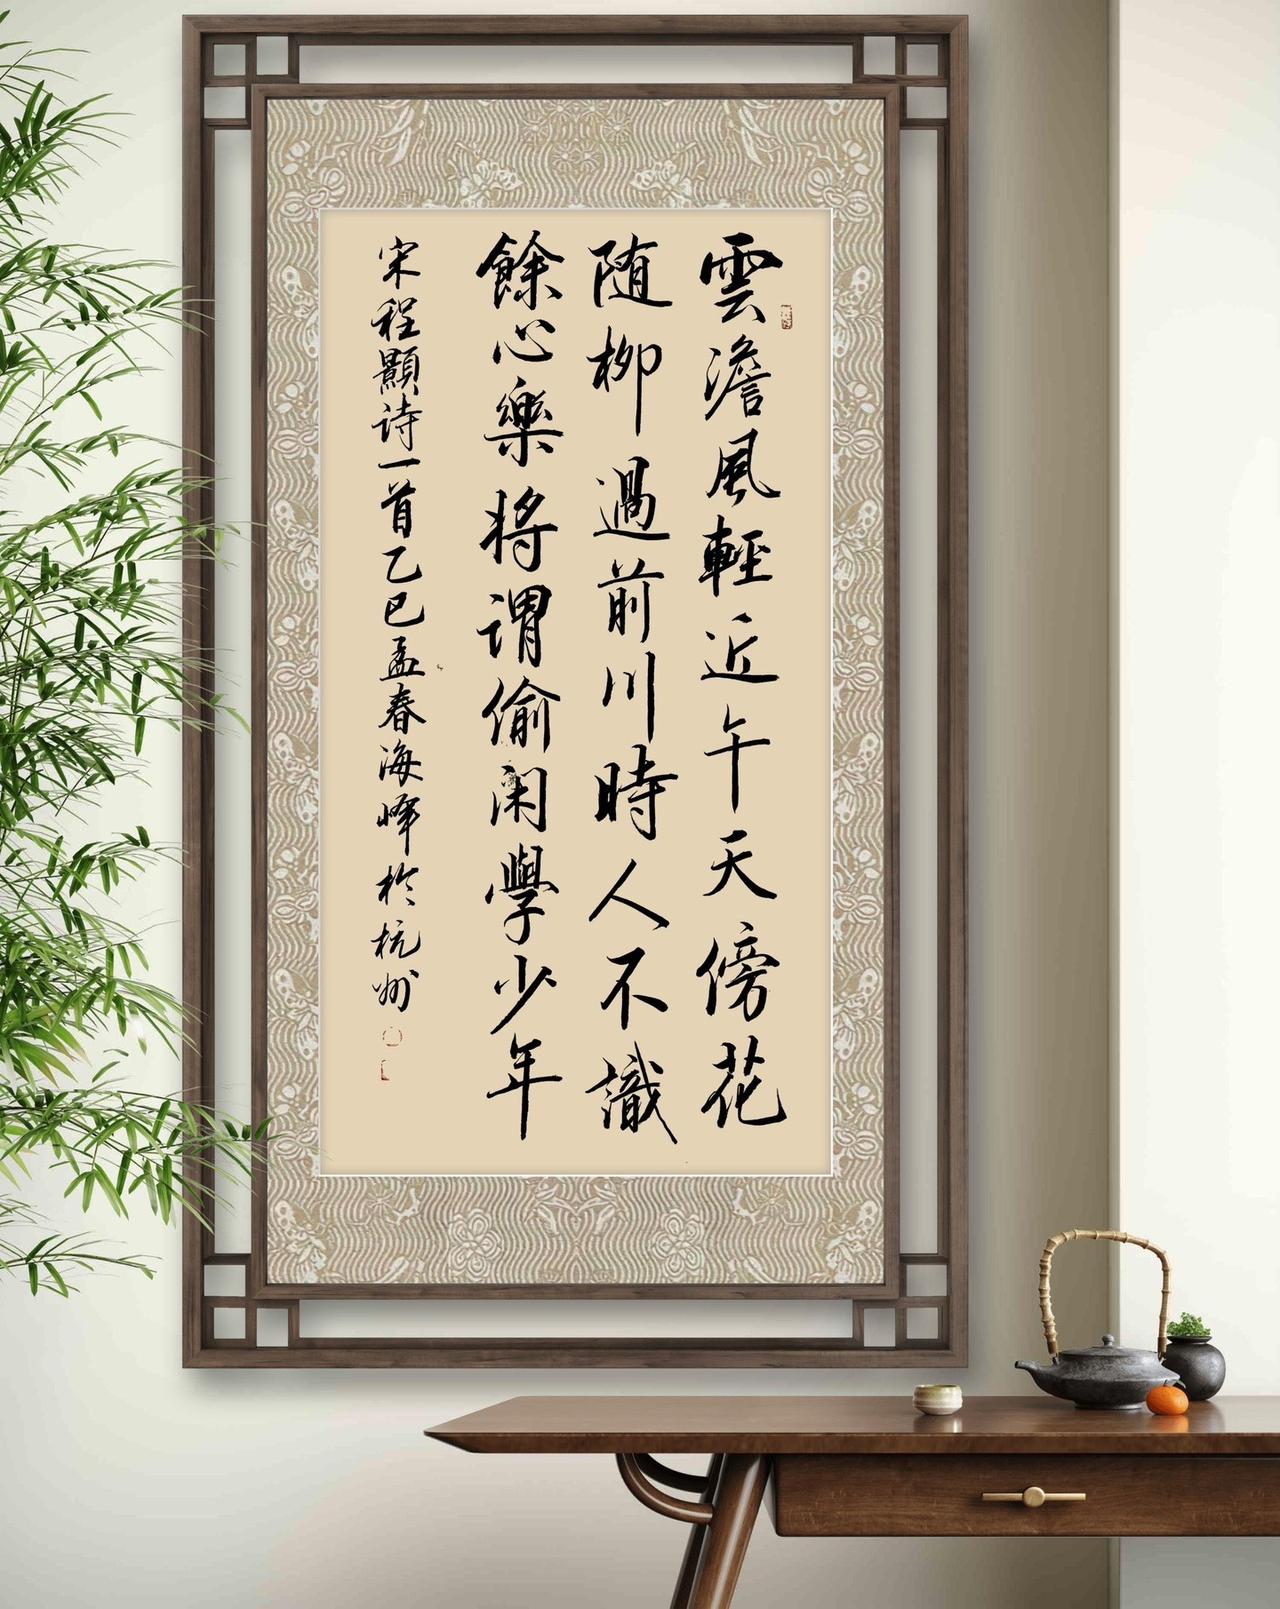 雲澹風輕近午天傍花
随柳過前川時人不識
餘心樂将谓偷闲學少年
宋程顥诗一首乙巳孟春海峰於杭州